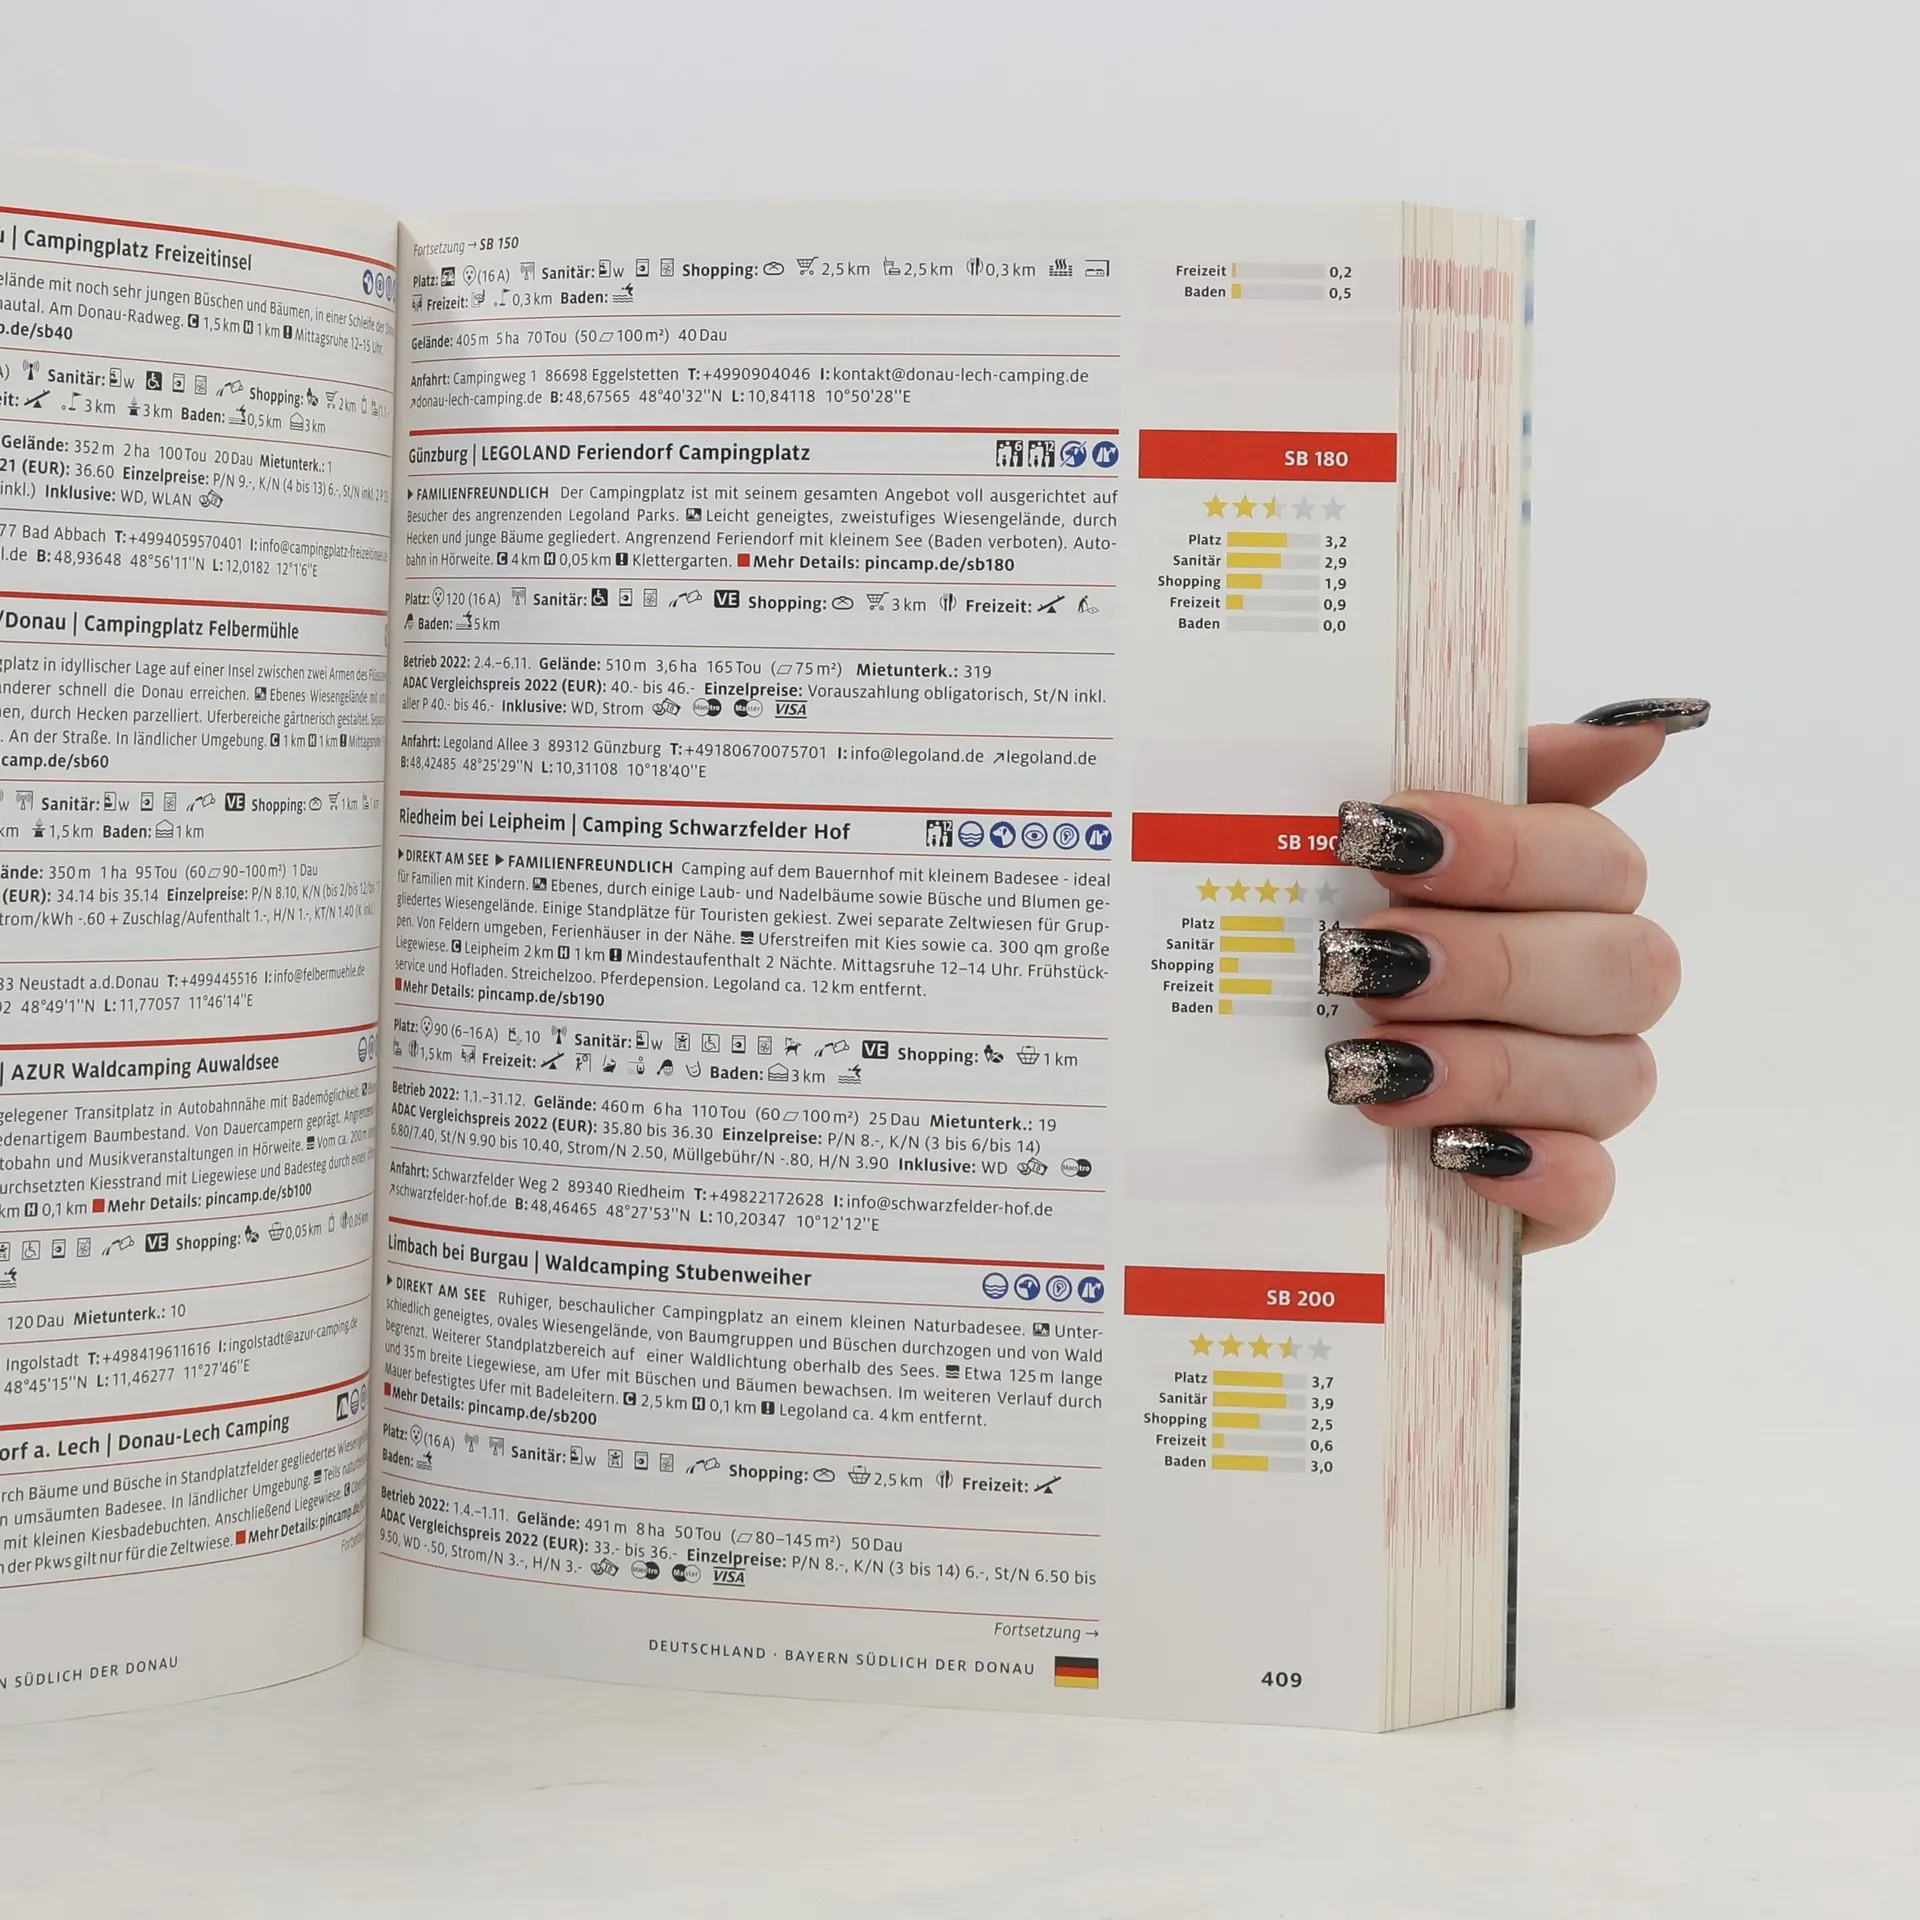 Campingplatz Freizeitinsel
elände mit noch sehr jungen Büschen und Bäumen, in einer Schleife der
nautal. Am Donau-Radweg. C 1,5 km H 1 km ! Mittagsruhe 12-15 Uhr.
p.de/sb40
Sanitär: w Shopping: 2 km
eit: 3 km 3 km Baden: 0,5 km 3 km
Gelände: 352 m 2 ha 100 Tou 20 Dau Mietunterk.: 1
21 (EUR): 36.60 Einzelpreise: P/N 9.-, K/N (4 bis 13) 6.-, St/N inkl.
inkl.) Inklusive: WD, WLAN
77 Bad Abbach T: +4994059570401 I: info@campingplatz-freizeitinsel
l.de B: 48,93648 48°56'11''N L: 12,0182 12°1'6''E
/Donau | Campingplatz Felbermühle
gplatz in idyllischer Lage auf einer Insel zwischen zwei Armen des
anderer schnell die Donau erreichen. Ebenes Wiesengelände mit
en, durch Hecken parzelliert. Uferbereiche gärtnerisch gestaltet.
. An der Straße. In ländlicher Umgebung. C 1 km H 1 km ! Mittagsruhe
camp.de/sb60
Sanitär: w VE Shopping: 1 km
km 1,5 km Baden: 1 km
ände: 350 m 1 ha 95 Tou (60 90-100 m²) 1 Dau
(EUR): 34.14 bis 35.14 Einzelpreise: P/N 8.10, K/N (bis 2/bis 12/bis
trom/kWh -.60 + Zuschlag/Aufenthalt 1.-, H/N 1.-, KT/N 1.40
33 Neustadt a.d.Donau T: +499445516 I: info@felbermuehle.de
02 48°49'1''N L: 11,77057 11°46'14''E
| AZUR Waldcamping Auwaldsee
gelegener Transitplatz in Autobahnnähe mit Bademöglichkeit.
edenartigem Baumbestand. Von Dauercampern geprägt.
tobahn und Musikveranstaltungen in Hörweite. Vom ca. 200 m
urchsetzten Kiesstrand mit Liegewiese und Badesteg durch einen
km H 0,1 km Mehr Details: pincamp.de/sb100
VE Shopping: 0,05 km 0,05 km
120 Dau Mietunterk.: 10
Ingolstadt T: +498419611616 I: ingolstadt@azur-camping.de
48°45'15''N L: 11,46277 11°27'46''E
orf a. Lech | Donau-Lech Camping
rch Bäume und Büsche in Standplatzfelder gegliedertes
n umsäumten Badesee. In ländlicher Umgebung. Teils
mit kleinen Kiesbadebuchten. Anschließend Liegewiese. C
n der Pkws gilt nur für die Zeltwiese. Mehr Details: pincamp.de/
N SÜDLICH DER DONAU
Fortsetzung → SB 150
Platz: (16 A) Sanitär: w Shopping: 2,5 km 2,5 km 0,3 km
Freizeit: 0,3 km Baden:
Gelände: 405 m 5 ha 70 Tou (50 100 m²) 40 Dau
Anfahrt: Campingweg 1 86698 Eggelstetten T: +4990904046 I: kontakt@donau-lech-camping.de
↗donau-lech-camping.de B: 48,67565 48°40'32''N L: 10,84118 10°50'28''E
Freizeit 0,2
Baden 0,5
Günzburg | LEGOLAND Feriendorf Campingplatz
▶ FAMILIENFREUNDLICH Der Campingplatz ist mit seinem gesamten Angebot voll ausgerichtet auf
Besucher des angrenzenden Legoland Parks. Leicht geneigtes, zweistufiges Wiesengelände, durch
Hecken und junge Bäume gegliedert. Angrenzend Feriendorf mit kleinem See (Baden verboten). Auto-
bahn in Hörweite. C 4 km H 0,05 km ! Klettergarten. Mehr Details: pincamp.de/sb180
Platz: 120 (16 A) Sanitär: VE Shopping: 3 km Freizeit:
Baden: 5 km
Betrieb 2022: 2.4.–6.11. Gelände: 510 m 3,6 ha 165 Tou (75 m²) Mietunterk.: 319
ADAC Vergleichspreis 2022 (EUR): 40.- bis 46.- Einzelpreise: Vorauszahlung obligatorisch, St/N inkl.
aller P 40.- bis 46.- Inklusive: WD, Strom Maestro Master VISA
Anfahrt: Legoland Allee 3 89312 Günzburg T: +49180670075701 I: info@legoland.de ↗legoland.de
B: 48,42485 48°25'29''N L: 10,31108 10°18'40''E
SB 180
Platz 3,2
Sanitär 2,9
Shopping 1,9
Freizeit 0,9
Baden 0,0
Riedheim bei Leipheim | Camping Schwarzfelder Hof
▶ DIREKT AM SEE ▶ FAMILIENFREUNDLICH Camping auf dem Bauernhof mit kleinem Badesee - ideal
für Familien mit Kindern. Ebenes, durch einige Laub- und Nadelbäume sowie Büsche und Blumen ge-
gliedertes Wiesengelände. Einige Standplätze für Touristen gekiest. Zwei separate Zeltwiesen für Grup-
pen. Von Feldern umgeben, Ferienhäuser in der Nähe. Uferstreifen mit Kies sowie ca. 300 qm große
Liegewiese. C Leipheim 2 km H 1 km ! Mindestaufenthalt 2 Nächte. Mittagsruhe 12–14 Uhr. Frühstück-
service und Hofladen. Streichelzoo. Pferdepension. Legoland ca. 12 km entfernt.
Mehr Details: pincamp.de/sb190
Platz: 90 (6–16 A) 10 Sanitär: w VE Shopping: 1 km
1,5 km Freizeit: Baden: 3 km
Betrieb 2022: 1.1.–31.12. Gelände: 460 m 6 ha 110 Tou (60 100 m²) 25 Dau Mietunterk.: 19
ADAC Vergleichspreis 2022 (EUR): 35.80 bis 36.30 Einzelpreise: P/N 8.-, K/N (3 bis 6/bis 14)
6.80/7.40, St/N 9.90 bis 10.40, Strom/N 2.50, Müllgebühr/N -.80, H/N 3.90 Inklusive: WD Maestro
Anfahrt: Schwarzfelder Weg 2 89340 Riedheim T: +49822172628 I: info@schwarzfelder-hof.de
↗schwarzfelder-hof.de B: 48,46465 48°27'53''N L: 10,20347 10°12'12''E
SB 190
Platz 3,4
Sanitär
Shopping
Freizeit
Baden 0,7
Limbach bei Burgau | Waldcamping Stubenweiher
▶ DIREKT AM SEE Ruhiger, beschaulicher Campingplatz an einem kleinen Naturbadesee. Unter-
schiedlich geneigtes, ovales Wiesengelände, von Baumgruppen und Büschen durchzogen und von Wald
begrenzt. Weiterer Standplatzbereich auf einer Waldlichtung oberhalb des Sees. Etwa 125 m lange
und 35 m breite Liegewiese, am Ufer mit Büschen und Bäumen bewachsen. Im weiteren Verlauf durch
Mauer befestigtes Ufer mit Badeleitern. C 2,5 km H 0,1 km ! Legoland ca. 4 km entfernt.
Mehr Details: pincamp.de/sb200
Platz: (16 A) Sanitär: w Shopping: 2,5 km Freizeit:
Baden:
Betrieb 2022: 1.4.–1.11. Gelände: 491 m 8 ha 50 Tou (80–145 m²) 50 Dau
ADAC Vergleichspreis 2022 (EUR): 33.- bis 36.- Einzelpreise: P/N 8.-, K/N (3 bis 14) 6.-, St/N 6.50 bis
9.50, WD -.50, Strom/N 3.-, H/N 3.- Maestro Master VISA
SB 200
Platz 3,7
Sanitär 3,9
Shopping 2,5
Freizeit 0,6
Baden 3,0
Fortsetzung →
DEUTSCHLAND · BAYERN SÜDLICH DER DONAU
409